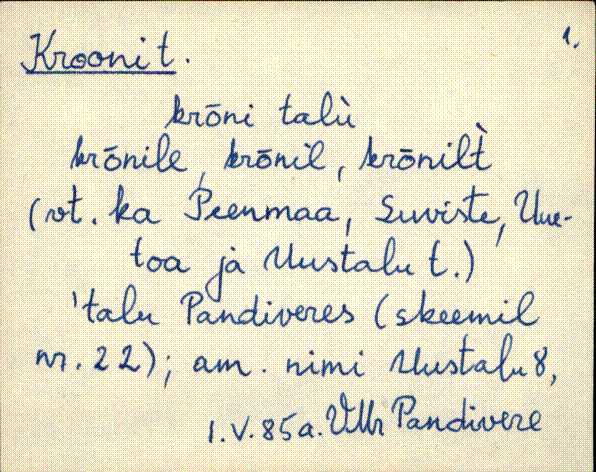 Krooni t. 1.
krōni talù
krōnile, krōnil, krōnilt̀
(vt. ka Peenmaa, Suviste, Uue-
toa ja Uustalu t.)
'talu Pandiveres (skeemil
nr. 22); am. nimi Uustalu 8,
1.V.85a. VMr Pandivere